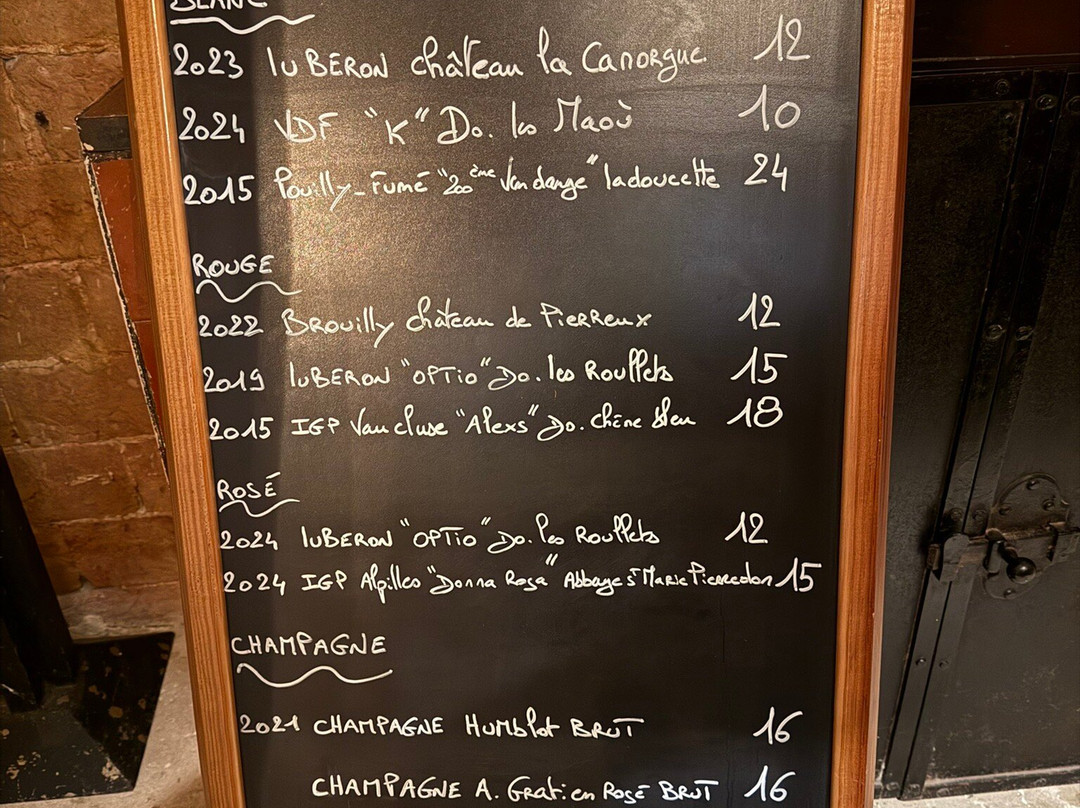 BLANC
2023 LUBERON Château la Canorgue 12
2024 VDF "K" Do. les Maoù 10
2015 Pouilly-Fumé "200ème Vendange" ladoucette 24
ROUGE
2022 BROUILLY Château de PIERREUX 12
2019 LUBERON "OPTIO" Do. les Rouffets 15
2015 IGP Vaucluse "Alexs" Do. Chêne bleu 18
ROSÉ
2024 LUBERON "OPTIO" Do. les Rouffets 12
2024 IGP Alpilles "Donna Rosa" Abbaye Ste MARIE Pierredon 15
CHAMPAGNE
2021 CHAMPAGNE Humblot BRUT 16
CHAMPAGNE A. Gratien ROSÉ BRUT 16